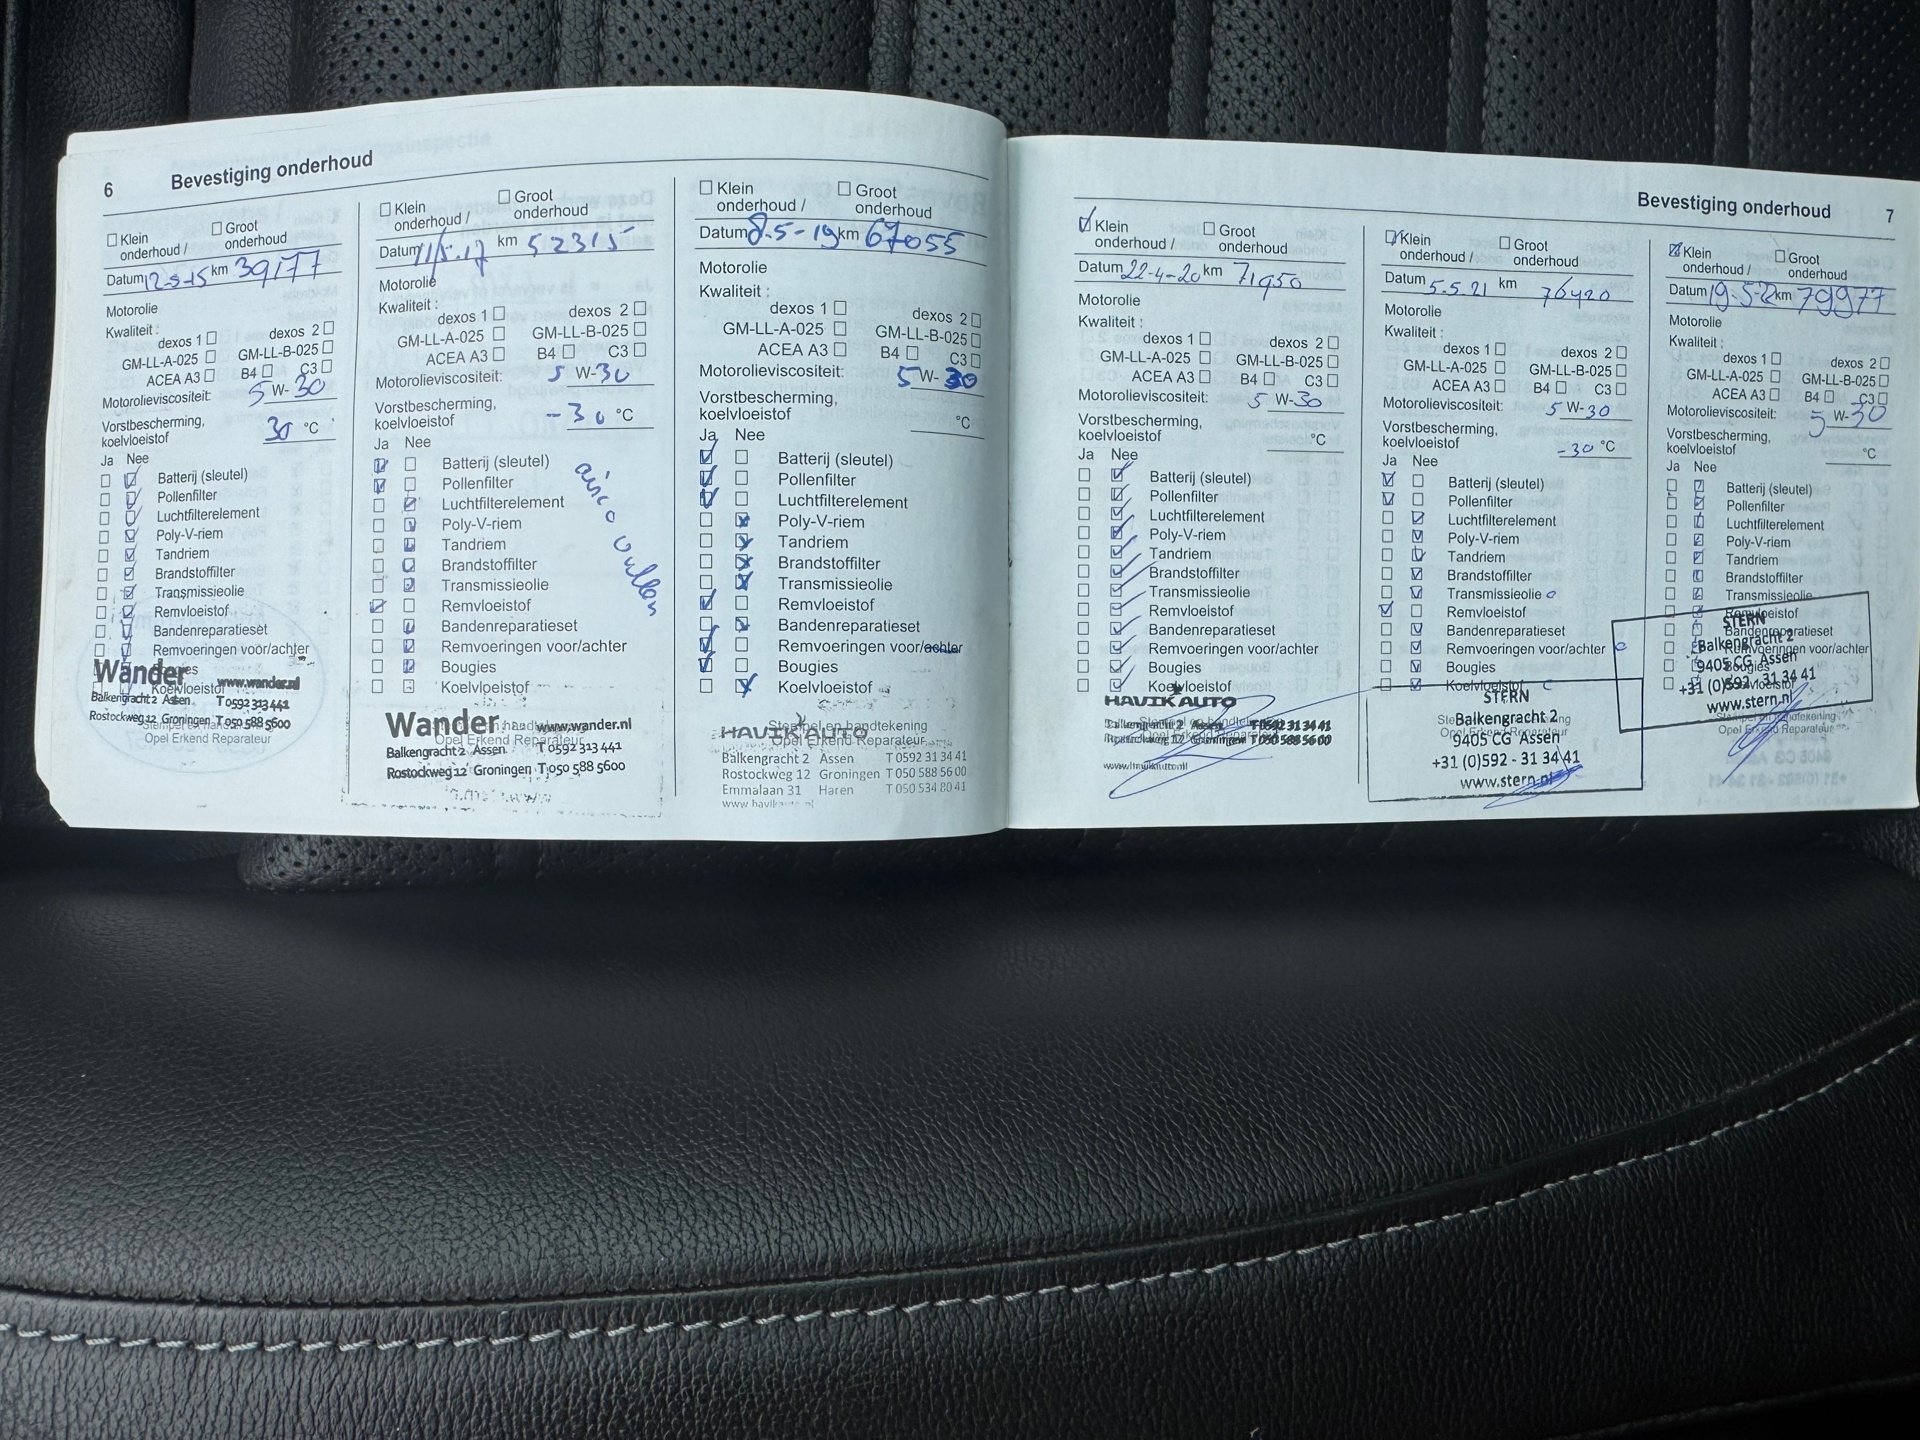 6 Bevestiging onderhoud
Klein onderhoud / Groot onderhoud
Datum 12-5-15 km 39177
Motorolie
Kwaliteit :
dexos 1 dexos 2
GM-LL-A-025 GM-LL-B-025
ACEA A3 B4 C3
Motorolieviscositeit: 5 W-30
Vorstbescherming,
koelvloeistof 30 °C
Ja Nee
Batterij (sleutel)
Pollenfilter
Luchtfilterelement
Poly-V-riem
Tandriem
Brandstoffilter
Transmissieolie
Remvloeistof
Bandenreparatieset
Remvoeringen voor/achter
Bougies
Koelvloeistof
Wander www.wander.nl
Balkengracht 2 Assen T 0592 313 441
Rostockweg 12 Groningen T 050 588 5600
Stempel en handtekening
Opel Erkend Reparateur
Klein onderhoud / Groot onderhoud
Datum 11/5.17 km 52315
Motorolie
Kwaliteit :
dexos 1 dexos 2
GM-LL-A-025 GM-LL-B-025
ACEA A3 B4 C3
Motorolieviscositeit: 5 W-30
Vorstbescherming,
koelvloeistof -30 °C
Ja Nee
Batterij (sleutel)
Pollenfilter
Luchtfilterelement
Poly-V-riem
Tandriem
Brandstoffilter
Transmissieolie
Remvloeistof
Bandenreparatieset
Remvoeringen voor/achter
Bougies
Koelvloeistof
airco vullen
Wander www.wander.nl
Balkengracht 2 Assen T 0592 313 441
Rostockweg 12 Groningen T 050 588 5600
Opel Erkend Reparateur
Klein onderhoud / Groot onderhoud
Datum 8-5-19 km 67055
Motorolie
Kwaliteit :
dexos 1 dexos 2
GM-LL-A-025 GM-LL-B-025
ACEA A3 B4 C3
Motorolieviscositeit: 5 W-30
Vorstbescherming,
koelvloeistof °C
Ja Nee
Batterij (sleutel)
Pollenfilter
Luchtfilterelement
Poly-V-riem
Tandriem
Brandstoffilter
Transmissieolie
Remvloeistof
Bandenreparatieset
Remvoeringen voor/achter
Bougies
Koelvloeistof
Stempel en handtekening
HAVIK AUTO
Opel Erkend Reparateur
Balkengracht 2 Assen T 0592 31 34 41
Rostockweg 12 Groningen T 050 588 56 00
Emmalaan 31 Haren T 050 534 80 41
www.havikauto.nl
Bevestiging onderhoud 7
Klein onderhoud / Groot onderhoud
Datum 22-4-20 km 71950
Motorolie
Kwaliteit :
dexos 1 dexos 2
GM-LL-A-025 GM-LL-B-025
ACEA A3 B4 C3
Motorolieviscositeit: 5 W-30
Vorstbescherming,
koelvloeistof °C
Ja Nee
Batterij (sleutel)
Pollenfilter
Luchtfilterelement
Poly-V-riem
Tandriem
Brandstoffilter
Transmissieolie
Remvloeistof
Bandenreparatieset
Remvoeringen voor/achter
Bougies
Koelvloeistof
HAVIK AUTO
Balkengracht 2 Assen T 0592 31 34 41
Rostockweg 12 Groningen T 050 588 56 00
www.havikauto.nl
Klein onderhoud / Groot onderhoud
Datum 5.5.21 km 76420
Motorolie
Kwaliteit :
dexos 1 dexos 2
GM-LL-A-025 GM-LL-B-025
ACEA A3 B4 C3
Motorolieviscositeit: 5 W-30
Vorstbescherming,
koelvloeistof -30 °C
Ja Nee
Batterij (sleutel)
Pollenfilter
Luchtfilterelement
Poly-V-riem
Tandriem
Brandstoffilter
Transmissieolie
Remvloeistof
Bandenreparatieset
Remvoeringen voor/achter
Bougies
Koelvloeistof
STERN
Balkengracht 2
9405 CG Assen
+31 (0)592 - 31 34 41
www.stern.nl
Klein onderhoud / Groot onderhoud
Datum 19-5-22 km 79977
Motorolie
Kwaliteit :
dexos 1 dexos 2
GM-LL-A-025 GM-LL-B-025
ACEA A3 B4 C3
Motorolieviscositeit: 5 W-30
Vorstbescherming,
koelvloeistof °C
Ja Nee
Batterij (sleutel)
Pollenfilter
Luchtfilterelement
Poly-V-riem
Tandriem
Brandstoffilter
Transmissieolie
Remvloeistof
Bandenreparatieset
Remvoeringen voor/achter
Bougies
Koelvloeistof
STERN
Balkengracht 2
9405 CG Assen
+31 (0)592 - 31 34 41
www.stern.nl